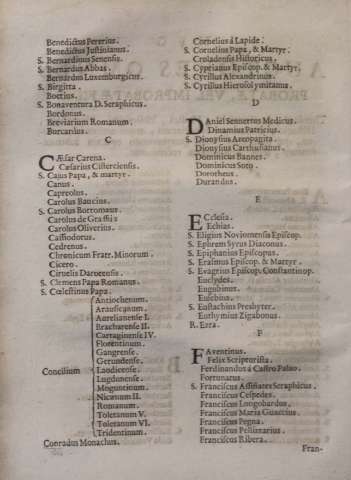 Benedictus Pererius.
Benedictus Justinianus.
S. Bernardinus Senensis.
S. Bernardus Abbas.
Bernardus Luxemburgicus.
S. Birgitta.
Boetius.
S. Bonaventura D. Seraphicus.
Bordonus.
Breviarium Romanum.
Borcardus.
C
CÆsar Carena.
Cæsarius Cisterciensis.
S. Cajus Papa, & martyr.
Canus.
Capreolus.
Carolus Baucius.
S. Carolus Borromæus.
Carolus de Grassis
Carolus Oliverius.
Cassiodorus.
Cedrenus.
Chronicum Fratr. Minorum.
Cicero.
Ciruelis Darocensis.
S. Clemens Papa Romanus.
S. Cœlestinus Papa.
Concilium
Antiochenum.
Arausicanum.
Aurelianense I.
Bracharense II.
Cartaginense IV.
Florentinum.
Gangrense.
Gerundense.
Laodicense.
Lugdunense.
Moguntinum.
Nicænum II.
Romanum.
Toletanum V.
Toletanum VI.
Tridentinum.
Conradus Monachus.
Cornelius à Lapide.
S. Cornelius Papa, & Martyr.
Croladensis Historicus.
S. Cyprianus Episcop. & Martyr.
S. Cyrillus Alexandrinus.
S. Cyrillus Hierosolymitanus.
D
DAniel Sennertus Medicus.
Dinamius Patricius.
S. Dionysius Areopagita.
Dionysius Carthusianus.
Dominicus Bannes.
Dominicus Soto.
Dorotheus.
Durandus.
E
ECclesia.
Echius.
S. Eligius Noviomensis Episcop.
S. Ephrem Syrus Diaconus.
S. Epiphanius Episcopus.
S. Erasmus Episcop. & Martyr.
S. Evagrius Episcop. Constantinop.
Euclydes.
Eugubinus.
Eusebius.
S. Eustachius Presbyter.
Euthymius Zigabonus.
R. Ezra.
F
FAventinus.
Felix Scripturista.
Ferdinandus à Castro Palao.
Fortunatus.
S. Franciscus Assisiates Seraphicus.
Franciscus Cespedes.
Franciscus Longobardus.
Franciscus Maria Guaccius.
Franciscus Pegna.
Franciscus Pellizarius.
Franciscus Ribera.
Fran-